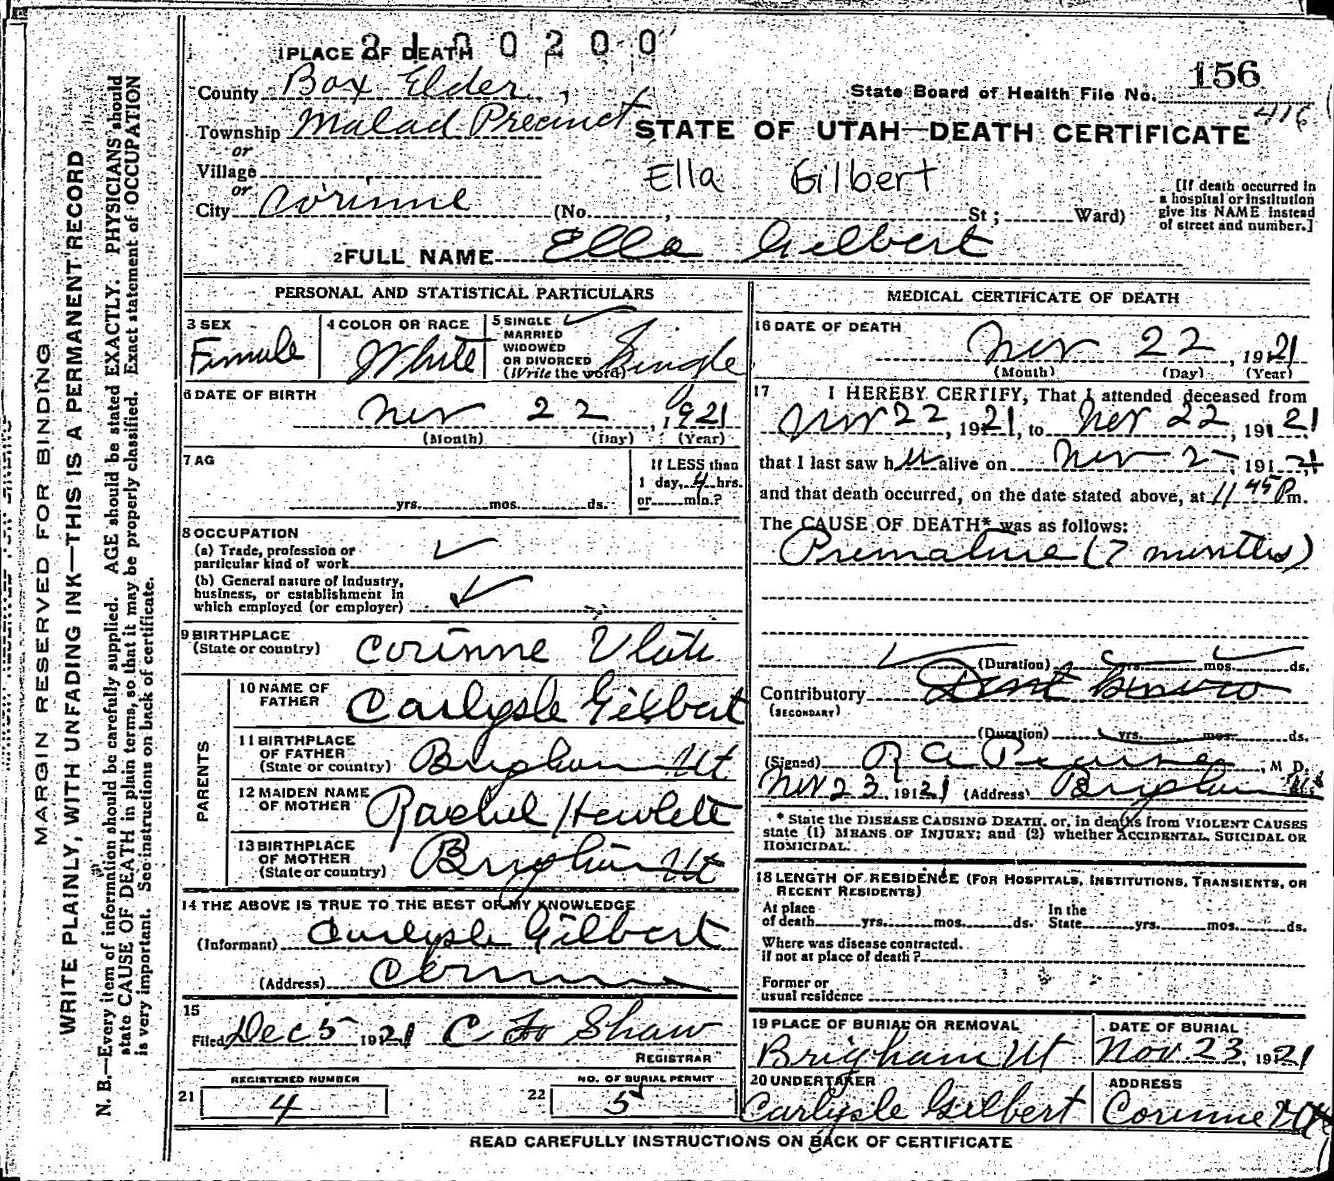 2100200
1 PLACE OF DEATH
County Box Elder,
Township Malad Precinct
or
Village
or
City Corinne
156
State Board of Health File No.
416
STATE OF UTAH—DEATH CERTIFICATE
Ella Gilbert
(No. , St; Ward)
[If death occurred in
a hospital or institution
give its NAME instead
of street and number.]
2 FULL NAME Ella Gilbert
MARGIN RESERVED FOR BINDING
WRITE PLAINLY, WITH UNFADING INK—THIS IS A PERMANENT RECORD
N. B.—Every item of information should be carefully supplied. AGE should be stated EXACTLY. PHYSICIANS should
state CAUSE OF DEATH in plain terms, so that it may be properly classified. Exact statement of OCCUPATION
is very important. See instructions on back of certificate.
PERSONAL AND STATISTICAL PARTICULARS
3 SEX
Female
4 COLOR OR RACE
White
5 SINGLE
MARRIED
WIDOWED
OR DIVORCED
(Write the word) Single
6 DATE OF BIRTH
Nov 22, 1921
(Month) (Day) (Year)
7 AG
yrs. mos. ds.
If LESS than
1 day, 4 hrs.
or min.?
8 OCCUPATION
(a) Trade, profession or
particular kind of work
(b) General nature of industry,
business, or establishment in
which employed (or employer)
9 BIRTHPLACE
(State or country) Corinne Utah
PARENTS
10 NAME OF
FATHER Carlysle Gilbert
11 BIRTHPLACE
OF FATHER
(State or country) Brigham Ut
12 MAIDEN NAME
OF MOTHER Rachel Hewlett
13 BIRTHPLACE
OF MOTHER
(State or country) Brigham Ut
14 THE ABOVE IS TRUE TO THE BEST OF MY KNOWLEDGE
(Informant) Carlysle Gilbert
(Address) Corinne
15
Filed Dec 5 1921 C Shaw
REGISTRAR
REGISTERED NUMBER
21 4
NO. OF BURIAL PERMIT
22 5
MEDICAL CERTIFICATE OF DEATH
16 DATE OF DEATH
Nov 22, 1921
(Month) (Day) (Year)
17 I HEREBY CERTIFY, That I attended deceased from
Nov 22, 1921, to Nov 22, 1921,
that I last saw h alive on Nov 2, 1921,
and that death occurred, on the date stated above, at 11 45 Pm.
The CAUSE OF DEATH* was as follows:
Premature (7 months)
(Duration) yrs. mos. ds.
Contributory
(SECONDARY)
(Duration) yrs. mos. ds.
(Signed) R A Pearse, M D.
Nov 23 1921 (Address) Brigham Ut
* State the DISEASE CAUSING DEATH, or, in deaths from VIOLENT CAUSES
state (1) MEANS OF INJURY; and (2) whether ACCIDENTAL, SUICIDAL OR
HOMICIDAL.
18 LENGTH OF RESIDENCE (FOR HOSPITALS, INSTITUTIONS, TRANSIENTS, OR
RECENT RESIDENTS)
At place
of death yrs. mos. ds.
In the
State yrs. mos. ds.
Where was disease contracted,
if not at place of death?
Former or
usual residence
19 PLACE OF BURIAL OR REMOVAL
Brigham Ut
DATE OF BURIAL
Nov. 23, 1921
20 UNDERTAKER
Carlysle Gilbert
ADDRESS
Corinne Ut
READ CAREFULLY INSTRUCTIONS ON BACK OF CERTIFICATE